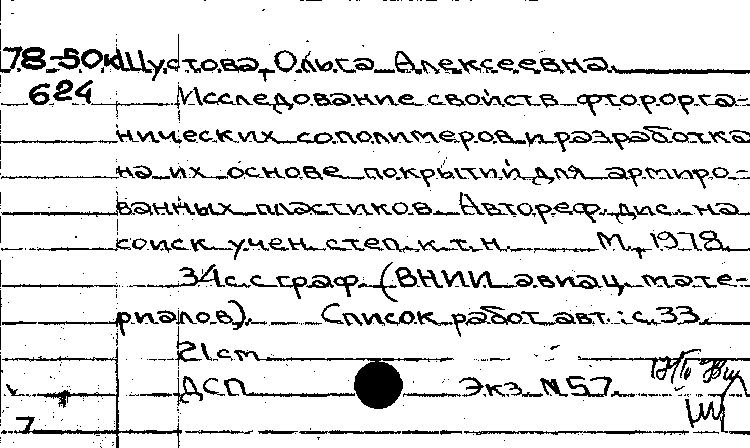 78-50к Шустова, Ольга Алексеевна.
624 Исследование свойств фторорга-
нических сополимеров и разработка
на их основе покрытий для армиро-
ванных пластиков. Автореф. дис. на
соиск. учен. степ. к.т.н. М., 1978.
34с. с граф. (ВНИИ авиац. мате-
риалов). Список работ авт.: с. 33.
21cm
ДСП Экз. N57.
7